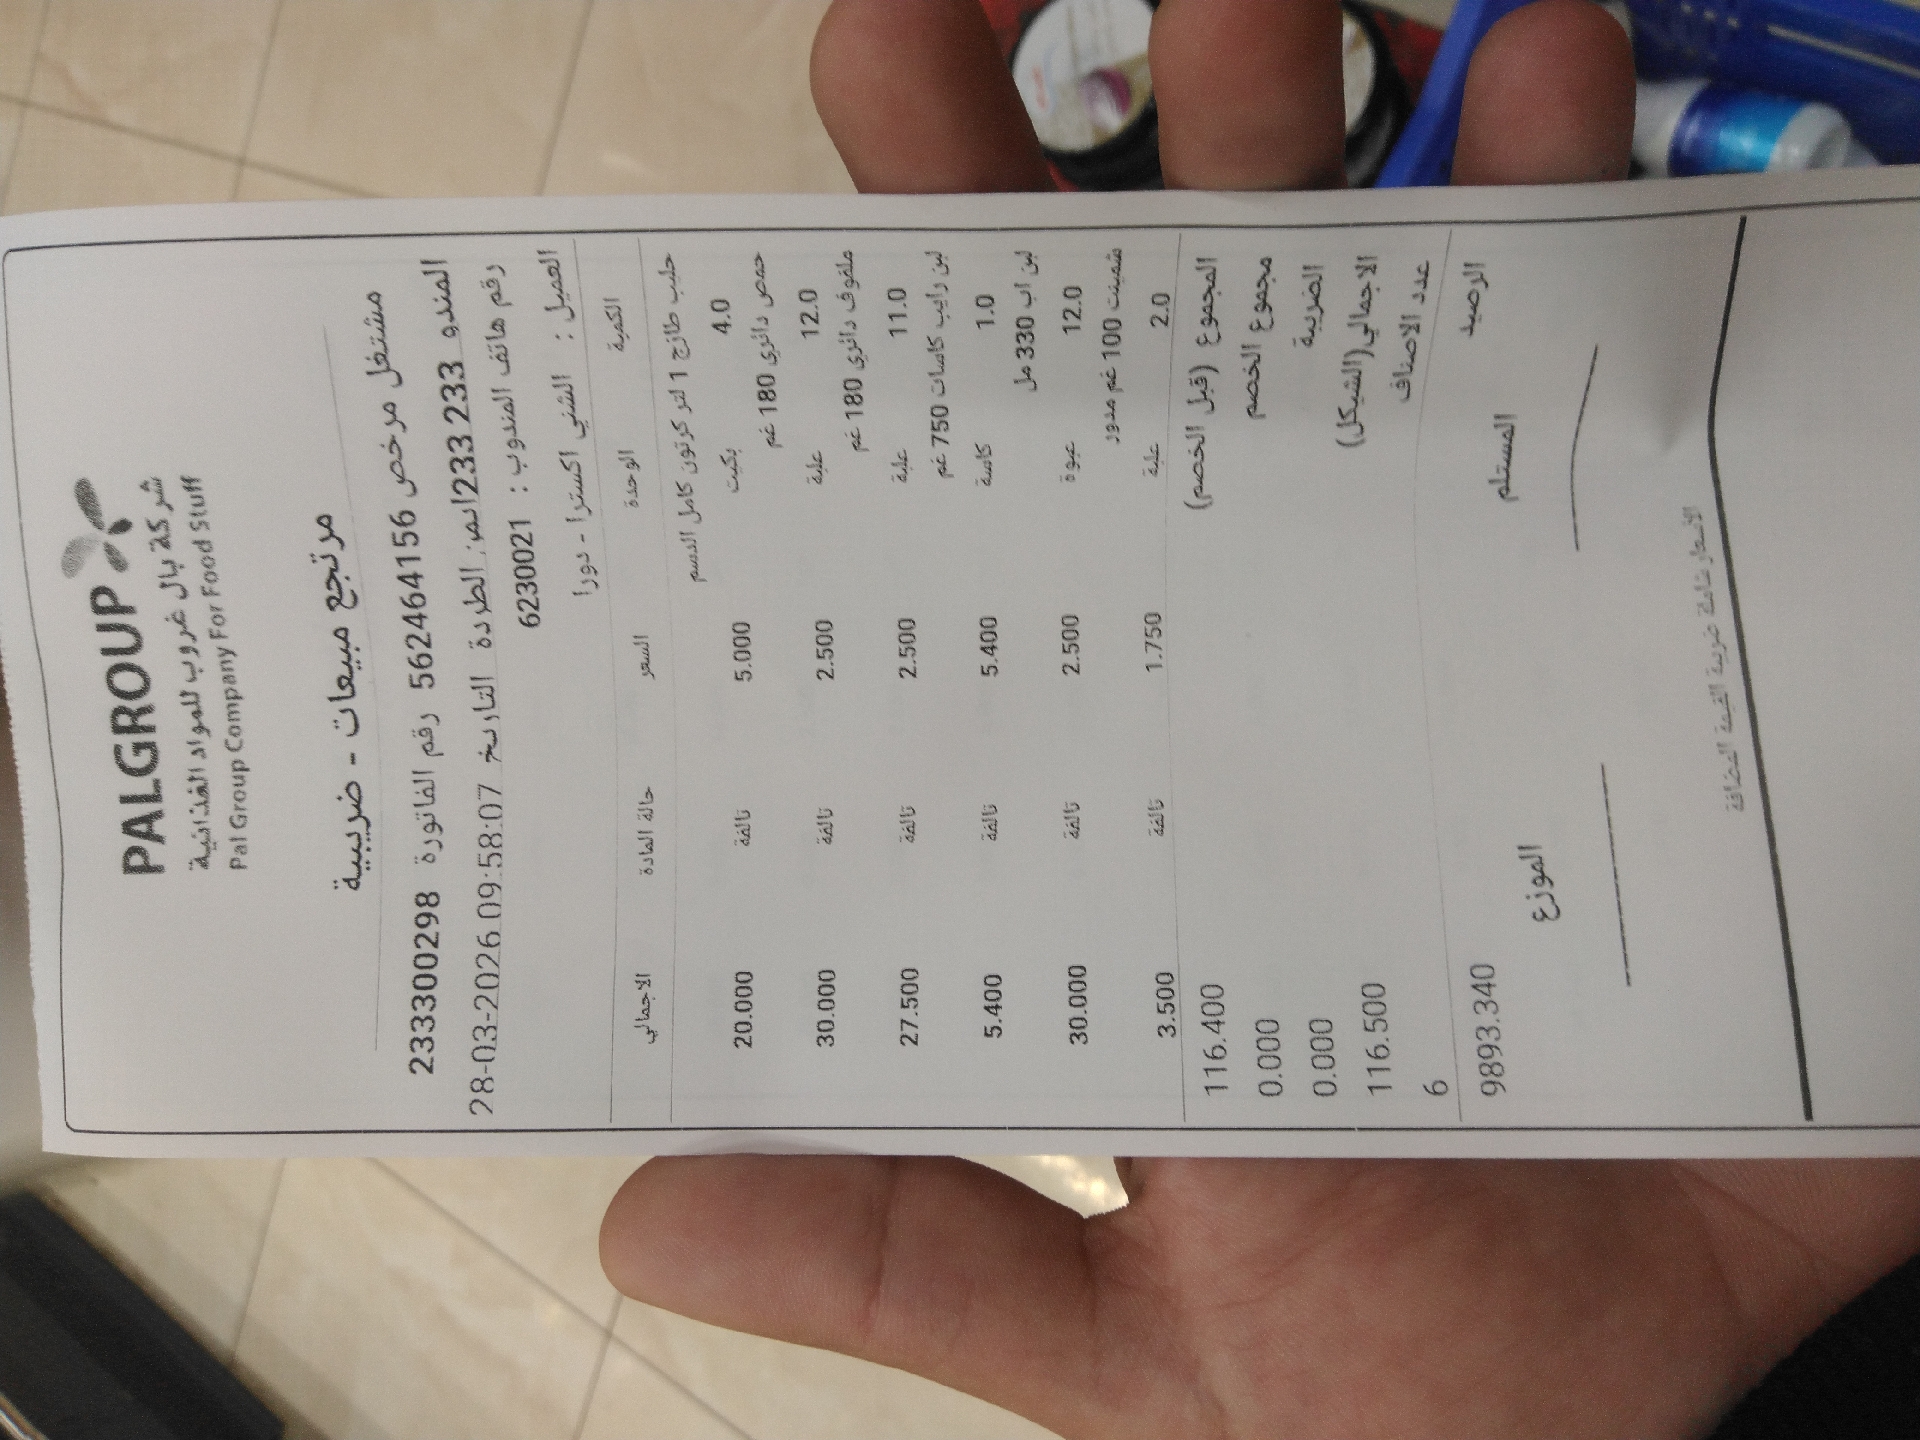 PALGROUP
شركة بال غروب للمواد الغذائية
Pal Group Company For Food Stuff
مرتجع مبيعات - ضريبية
مشتغل مرخص 562464156 رقم الفاتورة 233300298
المندو 233 233 الطردة التاريخ 28-03-2026 09:58:07
رقم هاتف المندوب : 6230021
العميل : الشني اكسترا - دورا
الكمية الوحدة السعر حالة المادة الاجمالي
حليب طازج 1 لتر كرتون كامل الدسم
4.0 بكيت 5.000 تالفة 20.000
حمص دائري 180 غم
12.0 علبة 2.500 تالفة 30.000
ملفوف دائري 180 غم
11.0 علبة 2.500 تالفة 27.500
لبن رايب كاسات 750 غم
1.0 كاسة 5.400 تالفة 5.400
لبن اب 330 مل
12.0 عبوة 2.500 تالفة 30.000
شمينت 100 غم مدور
2.0 علبة 1.750 تالفة 3.500
المجموع (قبل الخصم) 116.400
مجموع الخصم 0.000
الضريبة 0.000
الاجمالي(الشيكل) 116.500
عدد الاصناف 6
الرصيد 9893.340
المستلم الموزع
الاسعار شاملة ضريبة القيمة المضافة